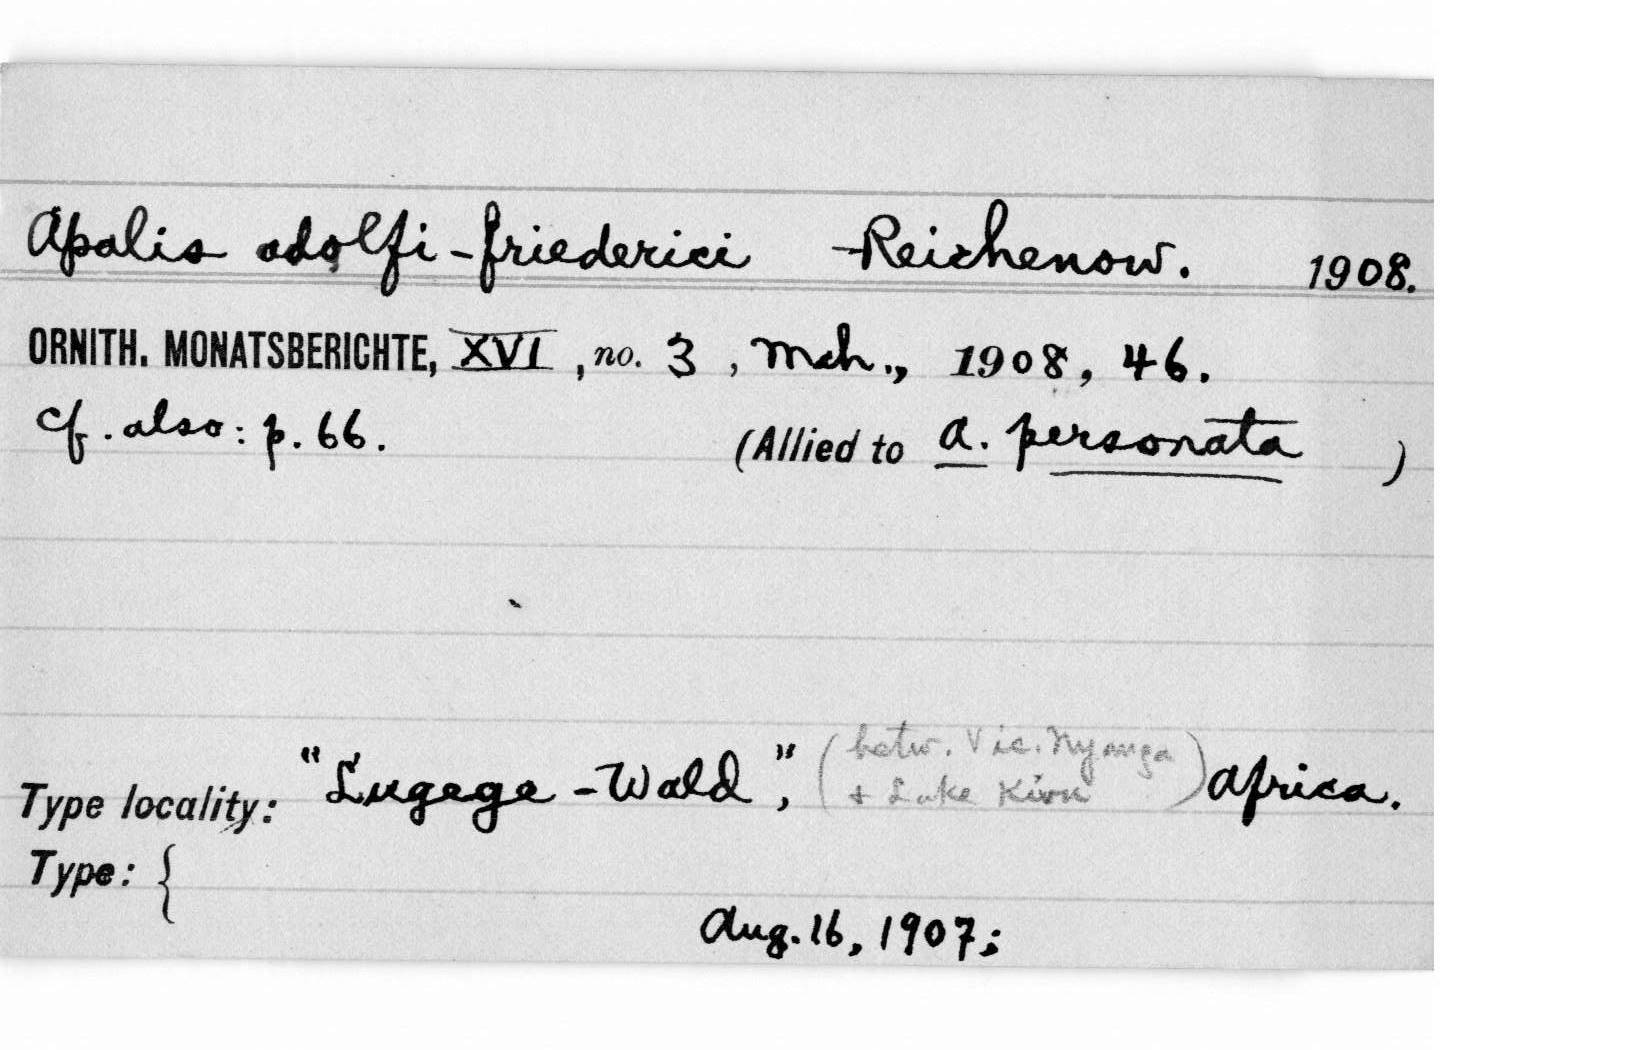 Apalis adolfi-friederici Reichenow. 1908.
ORNITH. MONATSBERICHTE, XVI, no. 3, Mch., 1908, 46.
cf. also: p. 66. (Allied to A. personata )
Type locality: "Lugege-Wald", (betw. Vic. Nyanza & Lake Kivu) Africa.
Type: {
Aug. 16, 1907;